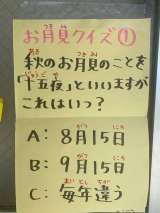 お月見クイズ①
秋のお月見のことを
「十五夜」といいますが
これはいつ?
A: 8月15日
B: 9月15日
C: 毎年違う